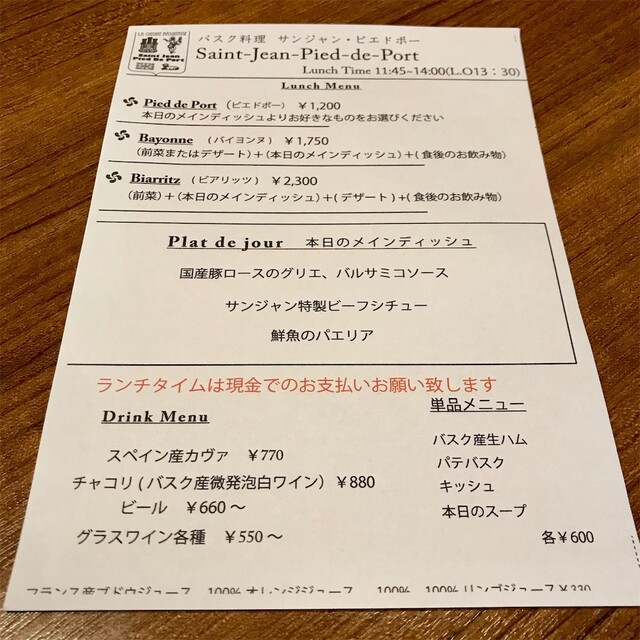 LA CUISINE BASQUAISE
Saint Jean
Pied De Port
バスク料理 サンジャン・ピエドポー
Saint-Jean-Pied-de-Port
Lunch Time 11:45~14:00(L.O13：30)
Lunch Menu
Pied de Port（ピエドポー） ¥1,200
本日のメインディッシュよりお好きなものをお選びください
Bayonne （バイヨンヌ） ¥1,750
（前菜またはデザート）＋（本日のメインディッシュ）＋（食後のお飲み物）
Biarritz （ビアリッツ） ¥2,300
（前菜）＋（本日のメインディッシュ）＋（デザート）＋（食後のお飲み物）
Plat de jour 本日のメインディッシュ
国産豚ロースのグリエ、バルサミコソース
サンジャン特製ビーフシチュー
鮮魚のパエリア
ランチタイムは現金でのお支払いお願い致します
Drink Menu
スペイン産カヴァ ¥770
チャコリ（バスク産微発泡白ワイン）¥880
ビール ¥660～
グラスワイン各種 ¥550～
単品メニュー
バスク産生ハム
パテバスク
キッシュ
本日のスープ
各¥600
フランス産ブドウジュース 100%オレンジジュース 100% 100%リンゴジュース¥330